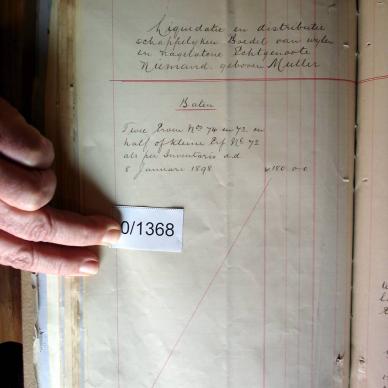 Liquidatie en distributie
schappelyken Boedel van wylen
en nagelatene Echtgenoote
Niemand geboren Muller
Baten
Twee Erven Nos 74 en 72 en
half of kleine Erf No 72
als per Inventaris d.d
8 Januari 1898 £180 0-0
0/1368